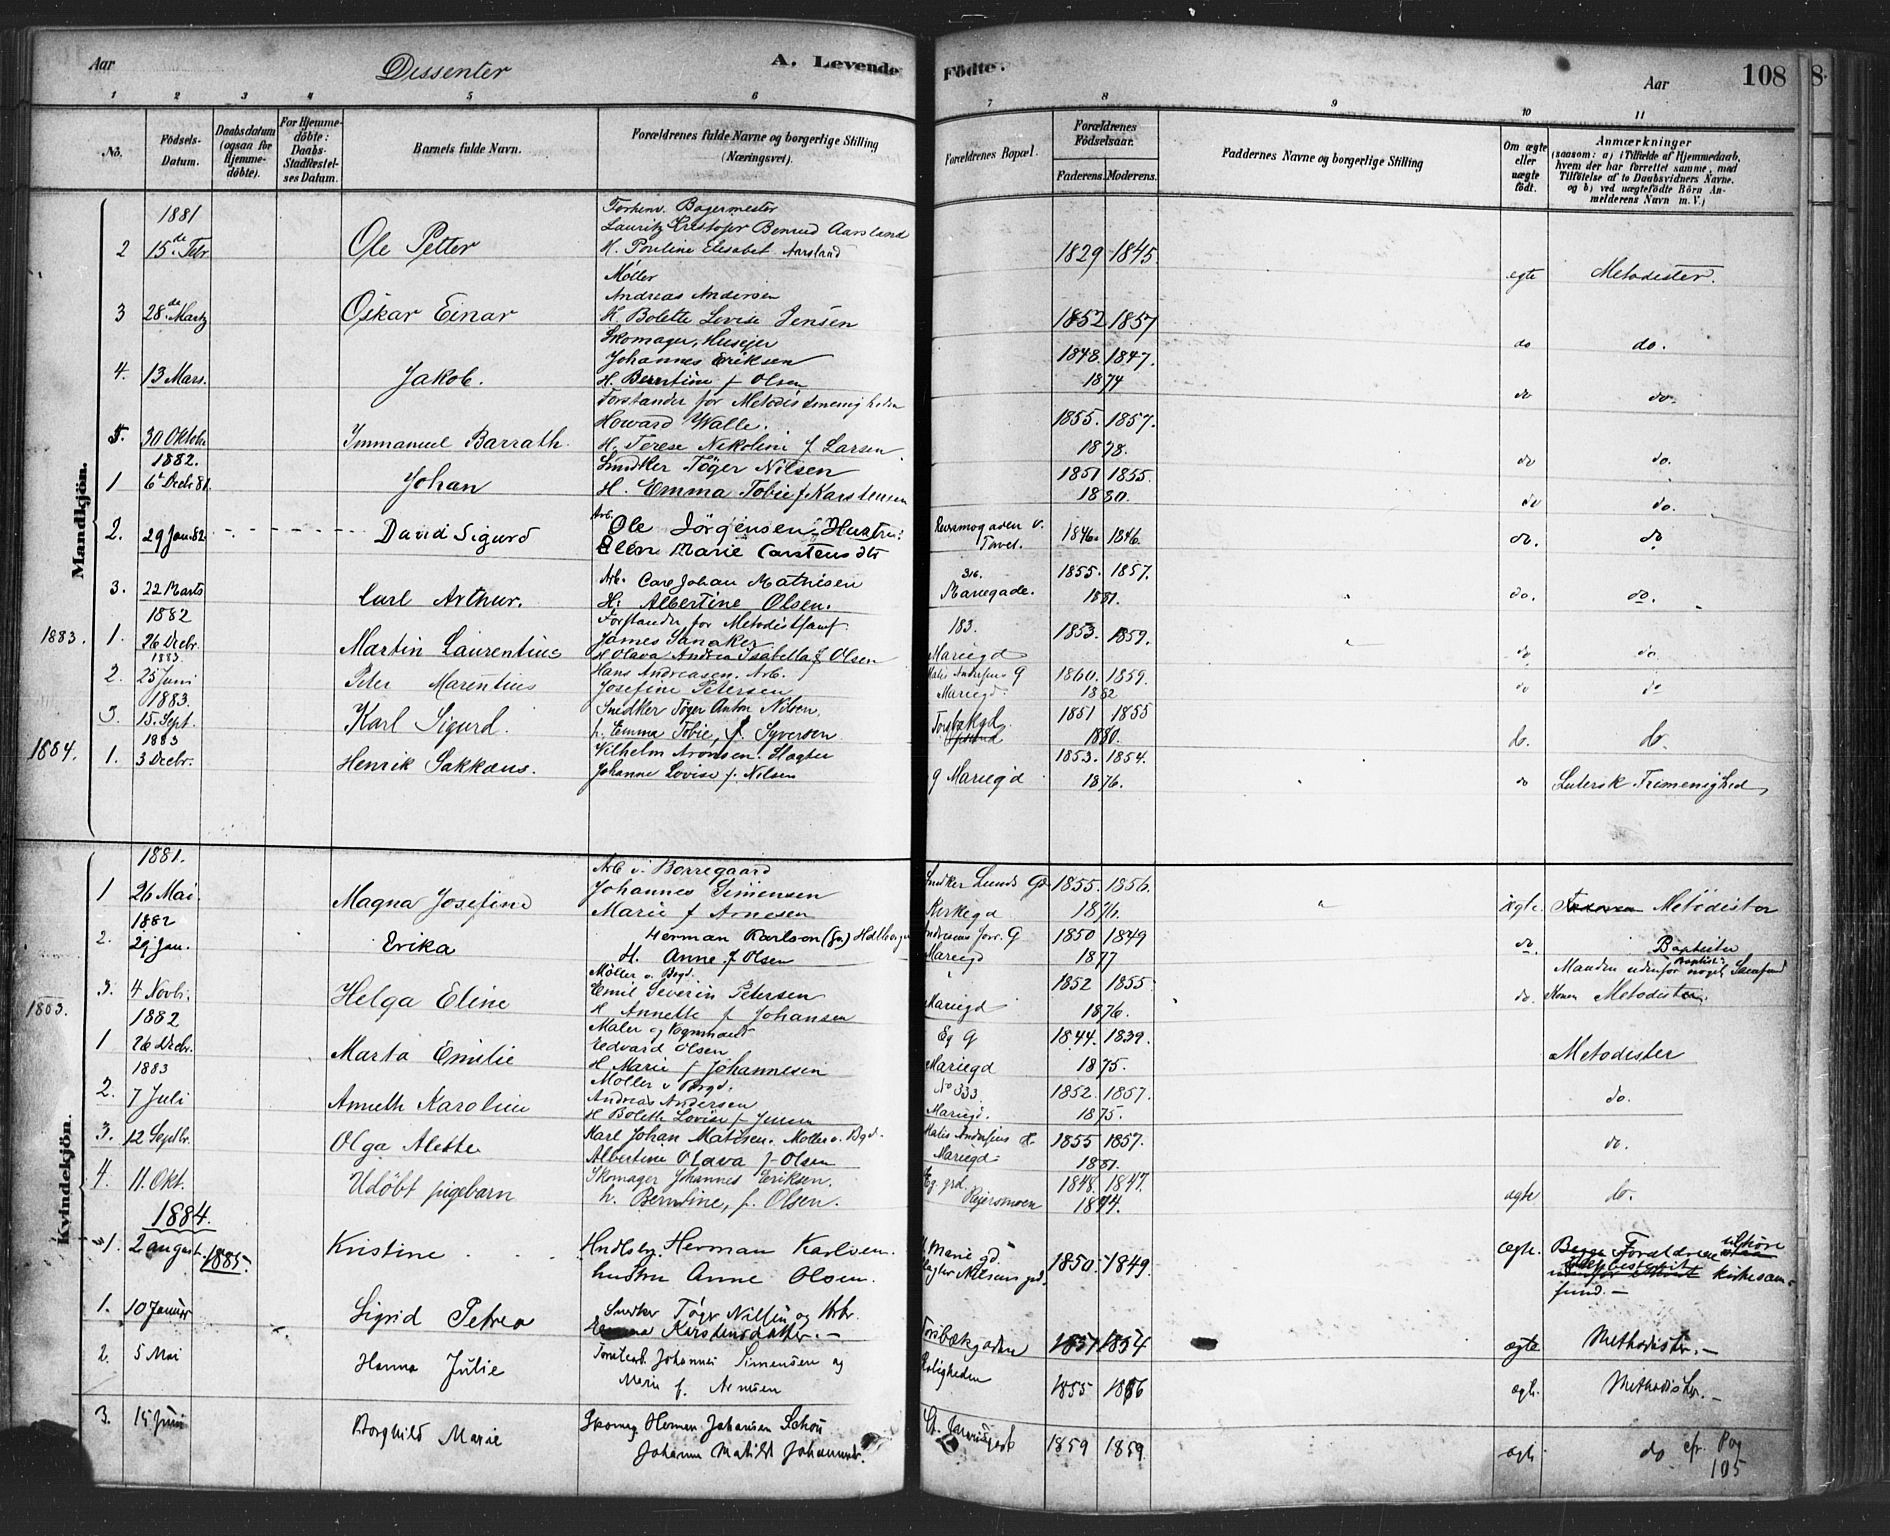 Aar
Dissenter
A. Levende Fødte.
Aar
108
8
1 2 3 4 5 6 7 8 9 10 11
No.
Fødsels-Datum.
Daabsdatum (ogsaa for Hjemmedøbte).
For Hjemmedøbte: Daabs-Stadfæstelses Datum.
Barnets fulde Navn.
Forældrenes fulde Navne og borgerlige Stilling (Næringsvei).
Forældrenes Bopæl.
Forældrenes Fødselsaar.
Faderens. Moderens.
Faddernes Navne og borgerlige Stilling
Om ægte eller uægte født.
Anmærkninger
(saasom: a) i Tilfælde af Hjemmedaab, hvem der har forrettet samme, med Tilføielse af to Daabsvidners Navne, og b) ved uægtefødte Børn Anmelderens Navn m. V.)
Mandkjøn.
1881
Forhenv. Bagermester
Lauritz Kristofer Bernud Aarsland
2 15de Febr Ole Petter H. Pouline Elisabet Aarsland 1829 1845 egte Metodister.
Møller
Andreas Andersen
3 28de Martz Oskar Einar H. Bolette Lovise Jensen 1852 1857 do do.
Skomager, Husejer
Johannes Eriksen 1848. 1847.
4. 13 Mars. Jakob. H. Berntine f Olsen 1874 do do.
Forstander for Metodistmenigheden
Howard Walle. 1855. 1857.
5. 30 Oktobr Immanuel Barrath. H. Terese Nikolini f Larsen 1878. do do.
1882.
Snedker Tøger Nilsen 1851 1855.
1 6t Decbr 81. Johan H. Emma Tobie f Karstensen 1880. do do.
2. 29 Jan. 82. David Sigurd Arb. Ole Jørgensen, Hustru: Torvet. 1846. 1846. do. do
Elen Marie Carstensdtr
3. 22 Marts Carl Arthur. Arb. Carl Johan Mathisen 316. 1855. 1857.
H. Albertine Olsen. Mariegade. 1881. do. do.
1882
Forstander for Metodistsamf
1883. 1. 26 Decbr. Martin Laurentius James Sanaker 183. 1853. 1859.
H Olava Andrea Isabella f Olsen Mariegd do do
1883.
2. 25 Juni Peter Marentius Hans Andreasen. Arb. 1860. 1859.
Josefine Petersen Mariegd. 1882 do do
1883.
3. 15. Sept. Karl Sigurd Snedker Tøger Anton Nilsen, 1851 1855
h. Emma Tobie, f. Syversen Torsbækgd. 1880. do. do.
1883
1884. 1. 3 Decbr. Henrik Sakkæus. Vilhelm Aronsen. Slagter 1853. 1854.
Johanne Lovise f. Nilsen g Mariegd 1876. do Lutersk Frimenighed
Kvindekjøn.
1881.
Arb. v. Borregaard
1 26 Mai. Magna Josefine Johannes Simensen Snedker Lunds Gd 1855. 1856.
Marie f Arnesen Kirkegd 1876. ægte. Metodister
1882
2. 29 Jan. Erika Herman Karlson 1850 1849
H. Anne f Olsen Mariegd 1877 do. Baptister
Manden udenfor noget Samfund
Møller v. Bogd.
3. 4 Novbr. Helga Eline Emil Severin Petersen 1852 1855
H Annette f Johansen Mariegd 1876. do. Konen Metodister.
1883.
1882
Maler og Vognmand
1 26 Decbr. Marta Emilie Edvard Olsen Eg G 1844. 1839.
H Marie f Johannesen Mariegd 1875. Metodister
1883
Møller v Borgd.
2. 7 Juli Anneth Karoline Andreas Andersen No 333 1852. 1857.
H Bolette Lovise f Jensen Mariegd. 1875. do.
3. 12 Septbr. Olga Alette Karl Johan Matisen. Møller v. Bgd. 1855 1857.
Albertine Olava f Olsen Mariegd. 1881. do.
4. 11. Okt. Udøbt pigebarn Skomager Johannes Eriksen. Eg. grd. 1848. 1847.
h. Berntine, f. Olsen. Hejersmoen 1874. ægte do.
1884.
1. 2 august. Kristine Hndlsbg. Herman Karlsen Marie gd. 1850. 1849. ægte. Begge Forældrene tilhøre
hustru Anne Olsen. kirkesamfund.
1885.
1. 10 Januar Sigrid Petrea Snedker Tøger Nilsen og Hstr.
Emma Kerstensdatter. Torsbækgaden 1851 1854 ægte Methodister.
2. 5 Mai Hanna Julie Johannes Simensen og
Marie f. Arnesen Roligheden 1855 1856 ægte. Methodister.
3. 15 Juni Borghild Marie Skomag. Herman Johansen Schou
Johanne Matilde Johannesd. 1859 1859. ægte. do cfr. Pag 105